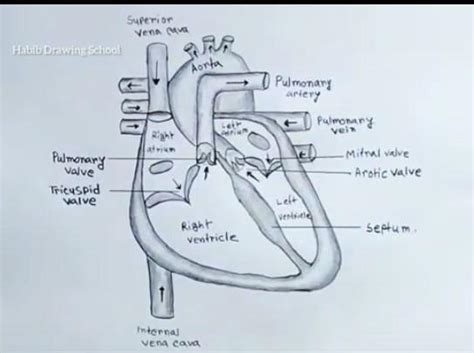 Superior
vena cava
Habib Drawing School
Aorta
Pulmonary
artery
Pulmonary
vein
Left
atrium
Right
atrium
Mitral valve
Pulmonary
valve
Arotic valve
Tricuspid
valve
Left
ventricle
Right
ventricle
Septum.
Internal
vena cava